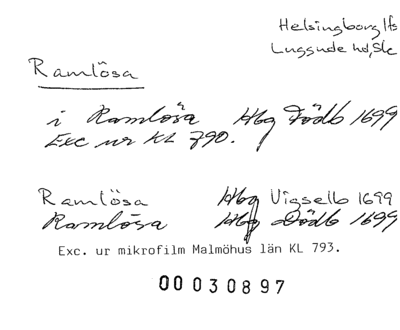 Helsingborg lfs
Luggude hd, Sk
Ramlösa
i Ramlösa Hbg Dödb 1699
Exc ur KL 790.
Ramlösa Hbg Vigselb 1699
Ramlösa Hbg Dödb 1699
Exc. ur mikrofilm Malmöhus län KL 793.
00030897